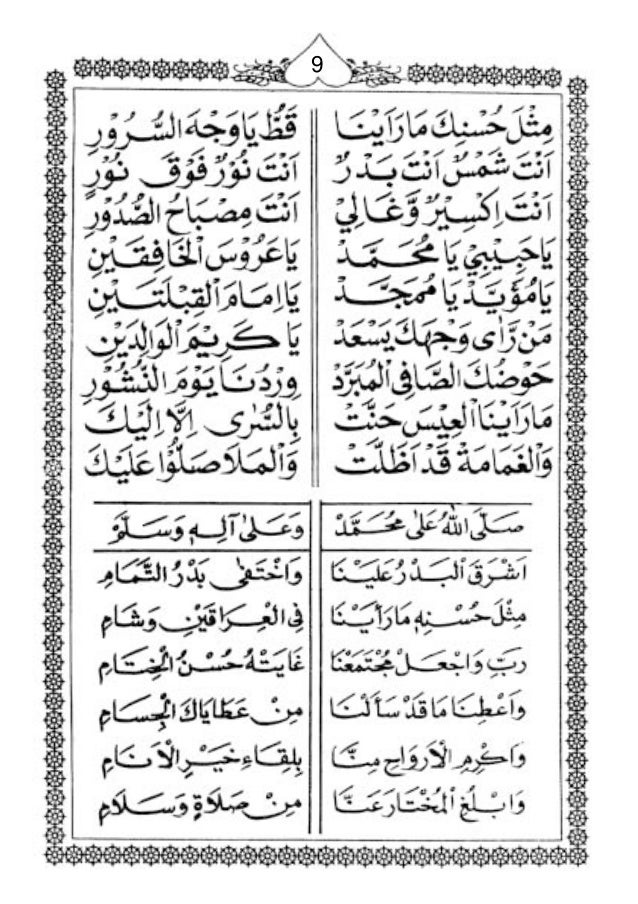 9
مِثْلَ حُسْنِكَ مَارَاَيْنَا قَطُّ يَا وَجْهَ السُّرُوْرِ
اَنْتَ شَمْسٌ اَنْتَ بَدْرٌ اَنْتَ نُوْرٌ فَوْقَ نُوْرٍ
اَنْتَ اِكْسِيْرٌ وَّغَالِيْ اَنْتَ مِصْبَاحُ الصُّدُوْرِ
يَاحَبِيْبِيْ يَا مُحَمَّدْ يَا عَرُوْسَ الْخَافِقَيْنِ
يَامُؤَيَّدْ يَا مُمَجَّدْ يَا اِمَامَ الْقِبْلَتَيْنِ
مَنْ رَّاٰى وَجْهَكَ يَسْعَدْ يَا كَرِيْمَ الْوَالِدَيْنِ
حَوْضُكَ الصَّافِى الْمُبَرَّدْ وِرْدُنَا يَوْمَ النُّشُوْرِ
مَارَاَيْنَا الْعِيْسَ حَنَّتْ بِالسُّرٰى اِلَّا اِلَيْكَ
وَالْغَمَامَةْ قَدْ اَظَلَّتْ وَالْمَلَا صَلُّوْا عَلَيْكَ
صَلَّى اللهُ عَلٰى مُحَمَّدْ وَعَلٰى آلِهٖ وَسَلَّمْ
اَشْرَقَ الْبَدْرُ عَلَيْنَا وَاخْتَفٰى بَدْرُ التَّمَامِ
مِثْلَ حُسْنِهٖ مَارَأَيْنَا فِى الْعِرَاقَيْنِ وَشَامِ
رَبِّ وَاجْعَلْ مُجْتَمَعْنَا غَايَتُهْ حُسْنُ الْخِتَامِ
وَاَعْطِنَا مَا قَدْ سَأَلْنَا مِنْ عَطَايَاكَ الْجِسَامِ
وَاَكْرِمِ الْاَرْوَاحَ مِنَّا بِلِقَاءِ خَيْرِ الْاَنَامِ
وَابْلُغِ الْمُخْتَارَ عَنَّا مِنْ صَلَاةٍ وَسَلَامِ